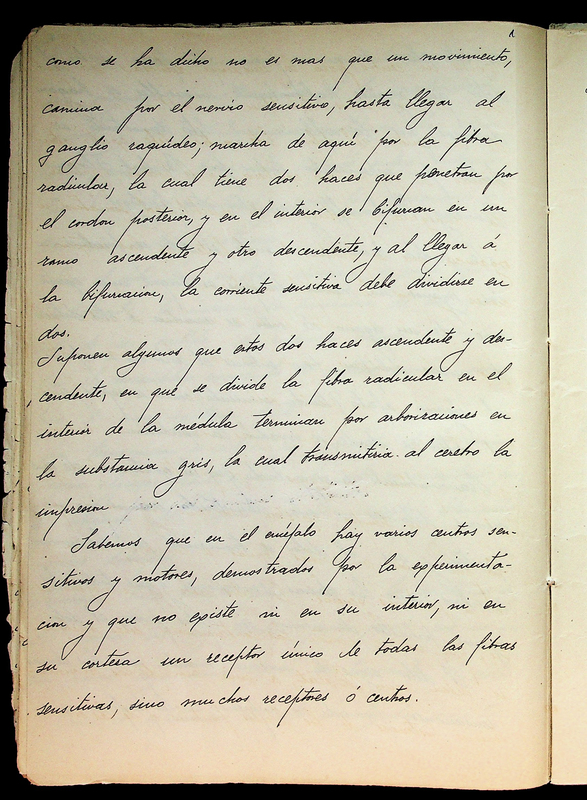 como se ha dicho no es mas que un movimiento,
camina por el nervio sensitivo, hasta llegar al
ganglio raquídeo; marcha de aquí por la fibra
radicular, la cual tiene dos haces que penetran por
el cordon posterior, y en el interior se bifurcan en un
ramo ascendente y otro descendente, y al llegar á
la bifurcacion, la corriente sensitiva debe dividirse en
dos.
Suponen algunos que estos dos haces ascendente y des-
cendente, en que se divide la fibra radicular en el
interior de la médula terminan por arborizaciones en
la substancia gris, la cual transmitiria al cerebro la
impresion
Sabemos que en el encéfalo hay varios centros sen-
sitivos y motores, demostrados por la experimenta-
cion y que no existe ni en su interior, ni en
su corteza un receptor único de todas las fibras
sensitivas, sino muchos receptores ó centros.